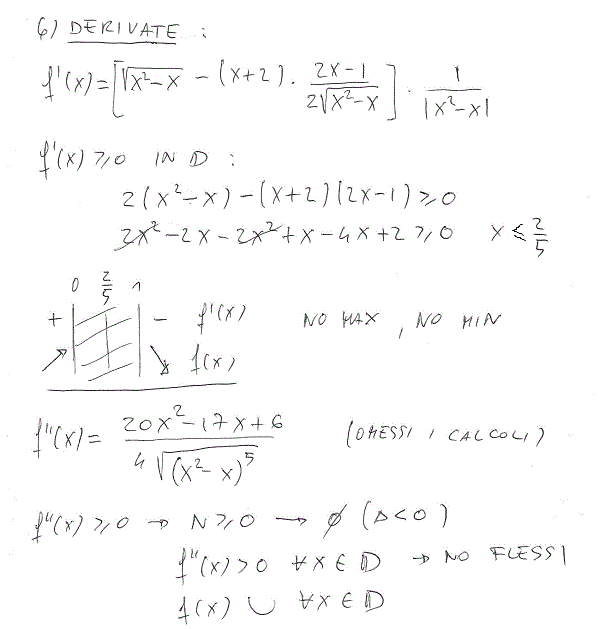 6) DERIVATE :
f'(x) = [√(x²-x) - (x+2) · (2x-1)/(2√(x²-x))] · 1/|x²-x|
f'(x) ≥ 0 IN D :
2(x²-x) - (x+2)(2x-1) ≥ 0
2x² - 2x - 2x² + x - 4x + 2 ≥ 0 x ≤ 2/5
0 2/5 1
+ - f'(x) NO MAX, NO MIN
↗ ↘ f(x)
f''(x) = (20x²-17x+6)/(4√((x²-x)⁵)) (OMESSI I CALCOLI)
f''(x) ≥ 0 → N ≥ 0 → ∅ (Δ<0)
f''(x) > 0 ∀x ∈ D → NO FLESSI
f(x) ∪ ∀x ∈ D